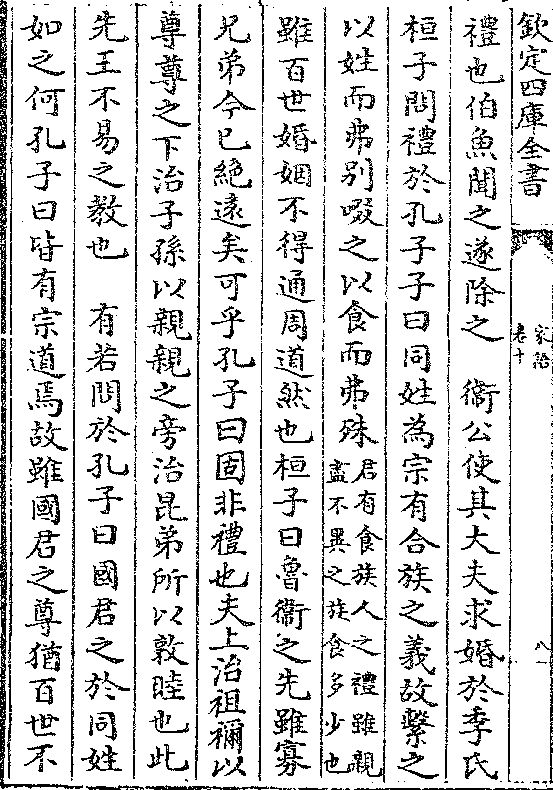 欽定四庫全書
家語
卷十
八
禮也伯魚聞之遂除之　衛公使其大夫求婚於季氏
桓子問禮於孔子子曰同姓為宗有合族之義故繫之
以姓而弗別啜之以食而弗殊君有食族人之禮雖親
盡不異之族食多少也
雖百世婚姻不得通周道然也桓子曰魯衛之先雖寡
兄弟今已絕遠矣可乎孔子曰固非禮也夫上治祖禰以
尊尊之下治子孫以親親之旁治昆弟所以敦睦也此
先王不易之教也　有若問於孔子曰國君之於同姓
如之何孔子曰皆有宗道焉故雖國君之尊猶百世不